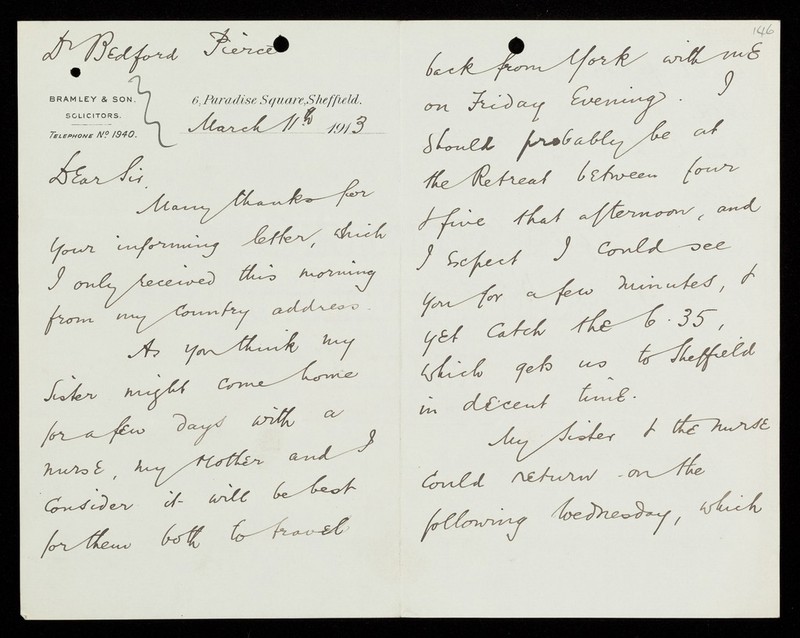 Dr Bedford Pierce
BRAMLEY & SON.
SOLICITORS.
TELEPHONE No 1940.
6, Paradise Square, Sheffield.
March 11th 1913
Dear Sir,
Many thanks for
your informing letter, which
I only received this morning
from my Country address.
As you think my
Sister might come home
for a few days with a
nurse, my Mother and I
Consider it will be best
for them both to travel
146
back from York with me
on Friday Evening. I
Should probably be at
the Retreat between four
& five that afternoon, and
I Expect I could see
you for a few minutes, &
yet Catch the 6.35,
which gets us to Sheffield
in decent time.
My Sister & the nurse
Could return on the
following Wednesday, which